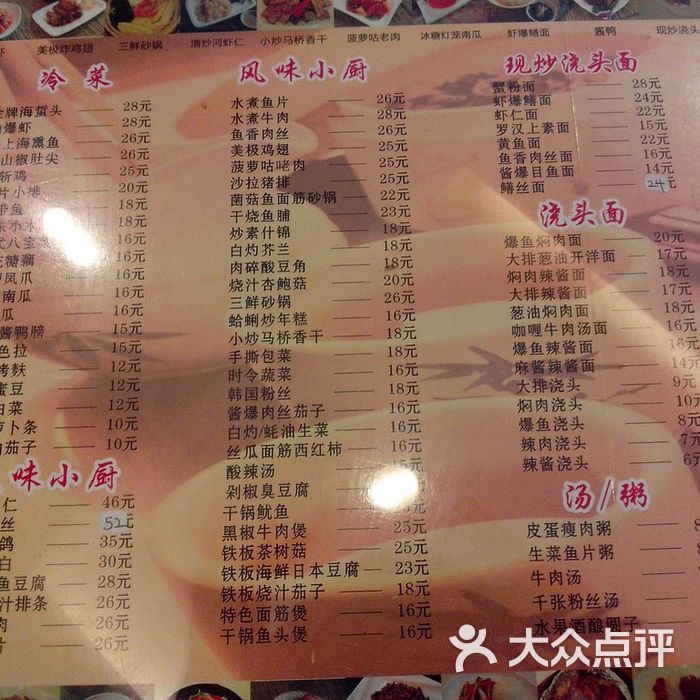 虾 美极炸鸡翅 三鲜砂锅 清炒河虾仁 小炒马桥香干 菠萝咕老肉 冰糖灯笼南瓜 虾爆鳝面 酱鸭 现炒浇头
冷菜
金牌海蜇头 28元
爆虾 28元
上海熏鱼 26元
山椒肚尖 26元
斩鸡 25元
片小排 20元
带鱼 18元
小木 18元
八宝 18元
糖藕 16元
凤爪 16元
南瓜 16元
瓜 16元
酱鸭膀 15元
色拉 15元
烤麸 12元
蜜豆 12元
白菜 12元
萝卜条 10元
茄子 10元
味小厨
仁 46元
丝 52元
鸽 35元
白 30元
鱼豆腐 28元
汁排条 26元
肉 26元
片 26元
风味小厨
水煮鱼片 26元
水煮牛肉 28元
鱼香肉丝 22元
美极鸡翅 26元
菠萝咕老肉 25元
沙拉猪排 20元
菌菇鱼面筋砂锅 22元
干烧鱼脯 23元
炒素什锦 18元
白灼芥兰 18元
肉碎酸豆角 18元
烧汁杏鲍菇 20元
三鲜砂锅 18元
蛤蜊炒年糕 16元
小炒马桥香干 18元
手撕包菜 16元
时令蔬菜 18元
韩国粉丝 18元
酱爆肉丝茄子 16元
白灼/蚝油生菜 16元
丝瓜面筋西红柿 16元
酸辣汤 16元
剁椒臭豆腐 16元
干锅鱿鱼 25元
黑椒牛肉煲 25元
铁板茶树菇 25元
铁板海鲜日本豆腐 23元
铁板烧汁茄子 18元
特色面筋煲 16元
干锅鱼头煲 16元
现炒浇头面
蟹粉面 28元
虾爆鳝面 24元
虾仁面 22元
罗汉上素面 15元
黄鱼面 22元
鱼香肉丝面 16元
酱爆目鱼面 14元
鳝丝面 24元
浇头面
爆鱼焖肉面 20元
大排葱油开洋面 17元
焖肉辣酱面 18元
大排辣酱面 17元
葱油焖肉面 14元
咖喱牛肉汤面 16元
爆鱼辣酱面 16元
麻酱辣酱面 14元
大排浇头 9元
焖肉浇头 8元
爆鱼浇头 8元
辣肉浇头 7元
辣酱浇头 6元
汤/粥
皮蛋瘦肉粥
生菜鱼片粥
牛肉汤
千张粉丝汤
水果酒酿圆子
大众点评